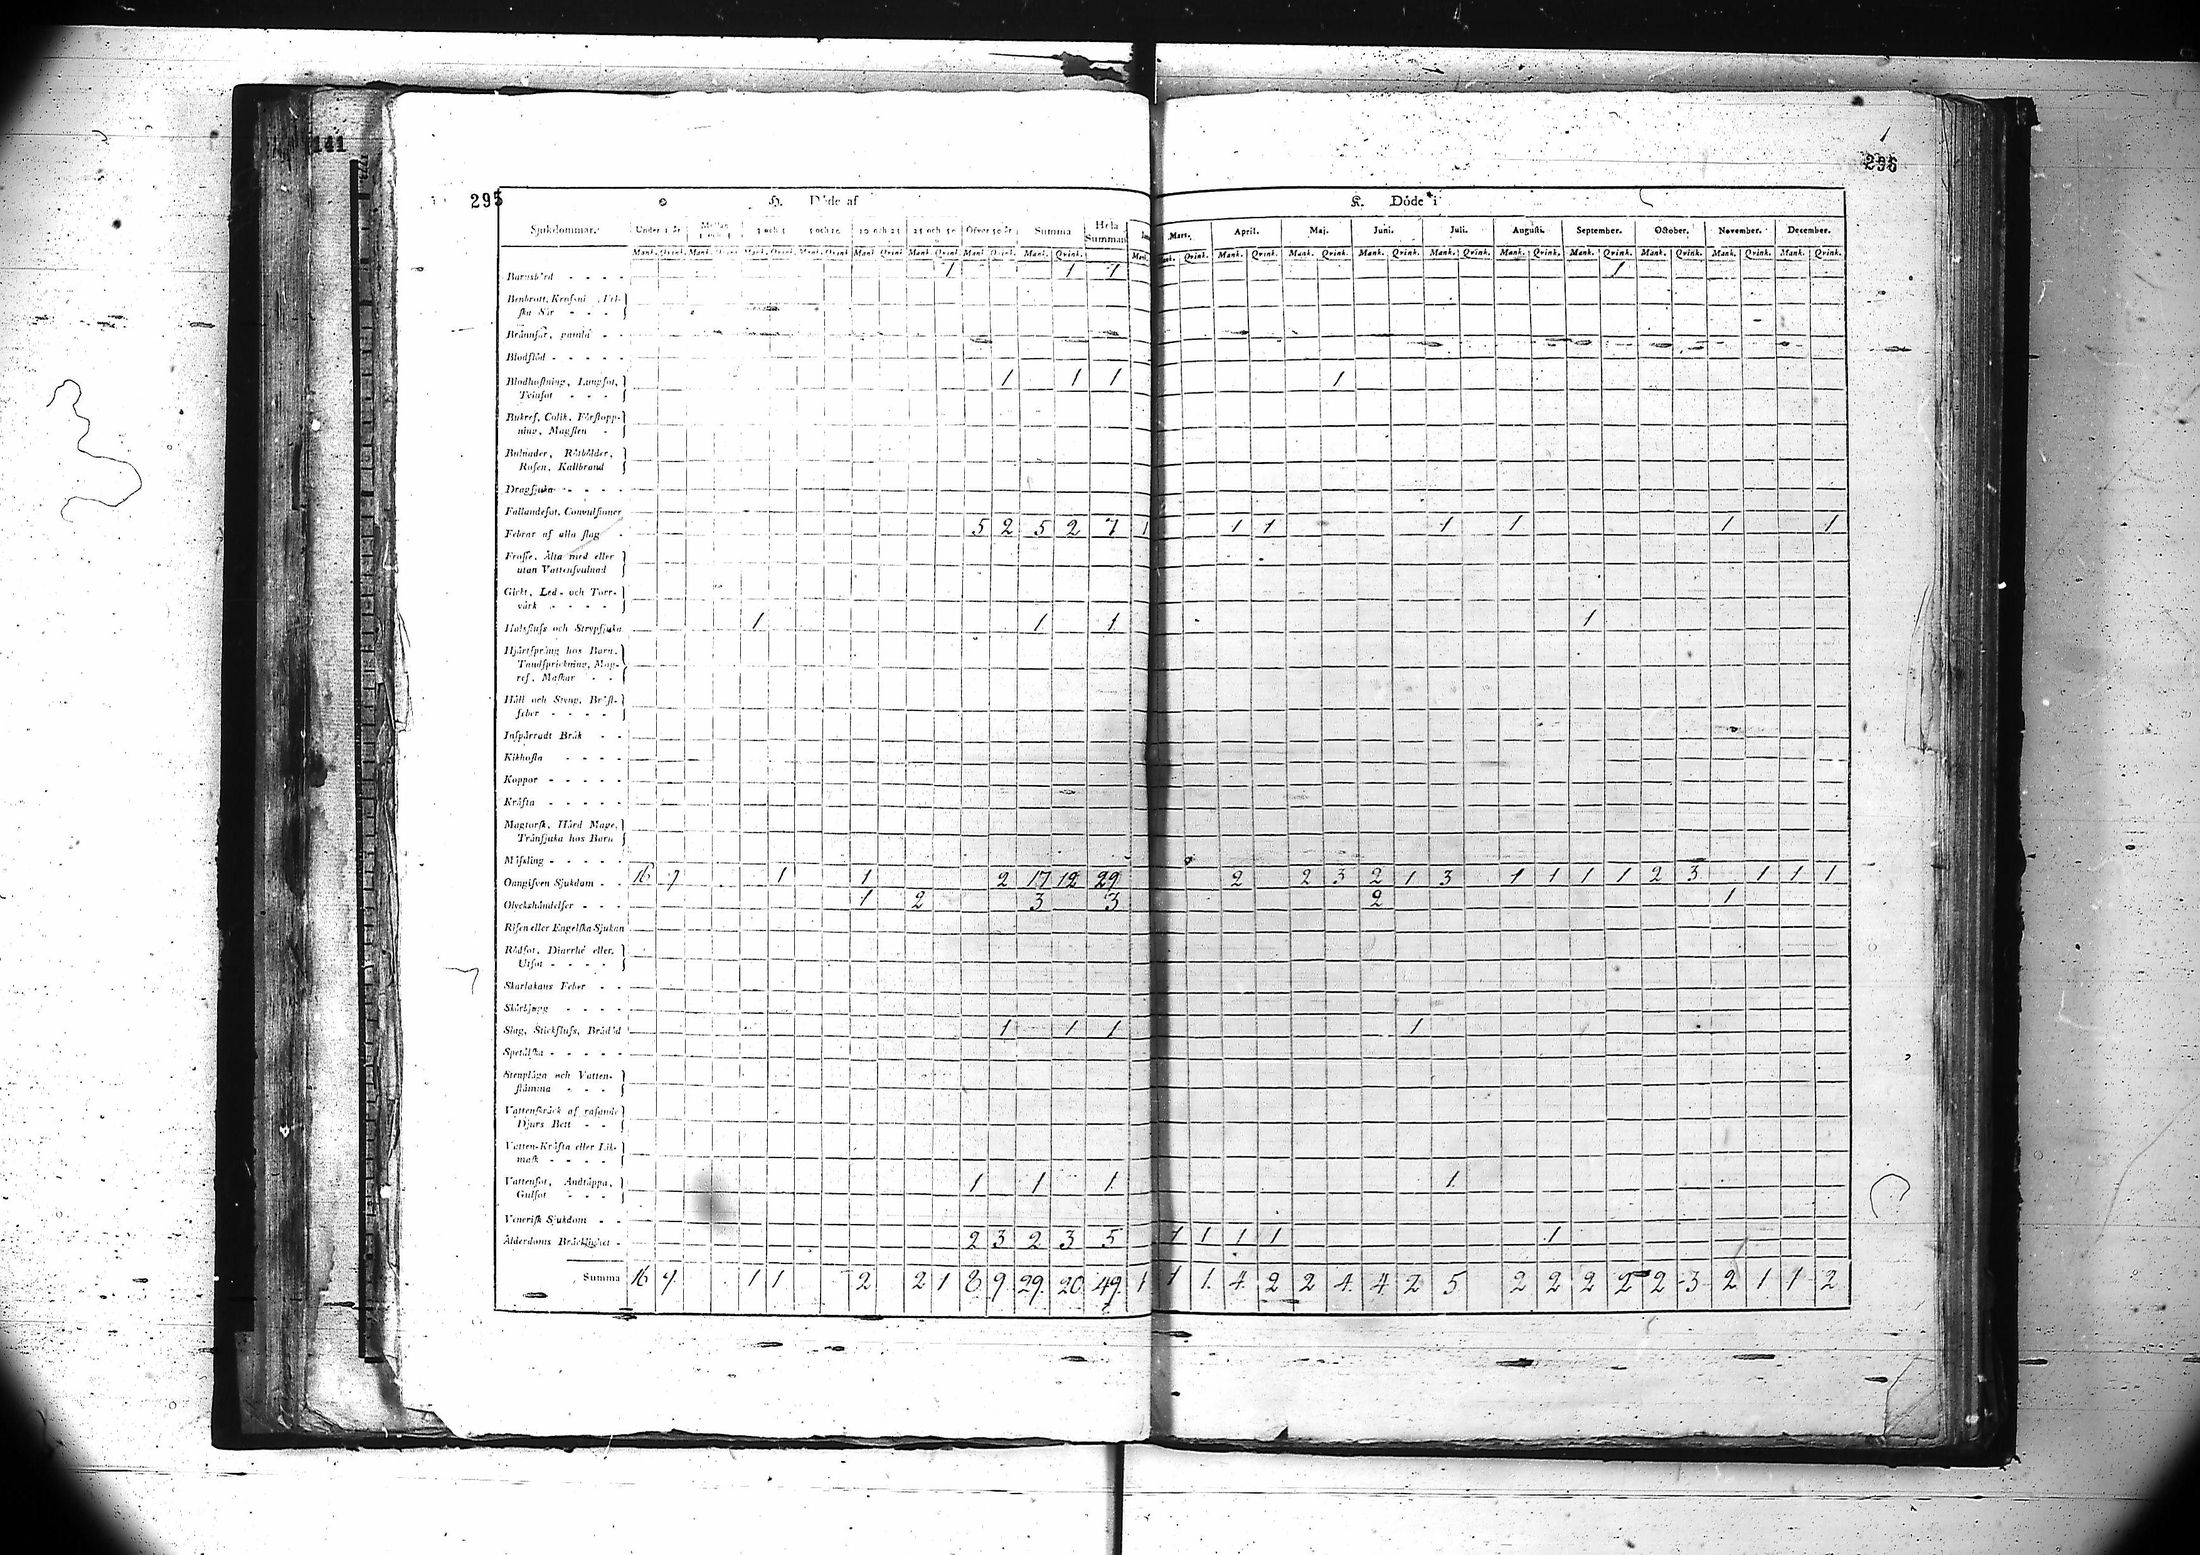 141
295
296
H. Döde af
K. Döde i
Sjukdommar. Under 1 år Mellan 1 och 3 3 och 5 5 och 10 10 och 25 25 och 50 Öfver 50 år Summa Hela Summan Mars. April. Maj. Juni. Juli. Augusti. September. October. November. December.
Mank. Qvink. Mank. Qvink. Mank. Qvink. Mank. Qvink. Mank. Qvink. Mank. Qvink. Mank. Qvink. Mank. Qvink. Mank. Qvink. Mank. Qvink. Mank. Qvink. Mank. Qvink. Mank. Qvink. Mank. Qvink. Mank. Qvink. Mank. Qvink. Mank. Qvink. Mank. Qvink.
Barnsbörd 1 1 1 1
Benbrott, Krofsni Fel-
ska Sår
Brännsår,
Blodflöd
Blodhostning, Lungsot, 1 1 1 1
Tvinsot
Bukref, Colik, Förstopp-
ning, Magsten
Bulnader, Rötbölder,
Rosen, Kallbrand
Dragsjuka
Fallandesot, Convulsioner
Febrar af alla slag 5 2 5 2 7 1 1 1 1 1 1 1
Frosse, Älta med eller
utan Vattensvulnad
Gickt, Led- och Torr-
värk
Halsfluss och Strypsjuka 1 1 1 1
Hjärtspräng hos Barn,
Tandsprickning, Mag-
ref, Maskar
Håll och Styng, Bröst-
feber
Inspärradt Bråk
Kikhosta
Koppor
Kräfta
Magtorsk, Hård Mage,
Tränsjuka hos Barn
Mässling
Oangifven Sjukdom 16 7 1 1 2 17 12 29 2 2 3 2 1 3 1 1 1 1 2 3 1 1 1
Olyckshändelser 1 2 3 3 2 1
Risen eller Engelska Sjukan
Rödsot, Diarrhé eller
Utsot
Skarlakans Feber
Skörbjugg
Slag, Stickfluss, Brådöd 1 1 1 1
Spetälska
Stenplåga och Vatten-
stämma
Vattenskräck af rasande
Djurs Bett
Vatten-Kräfta eller Lik-
mask
Vattensot, Andtäppa, 1 1 1 1
Gulsot
Venerisk Sjukdom
Ålderdoms Bräcklighet 2 3 2 3 5 1 1 1 1 1
Summa 16 7 1 1 2 2 1 8 9 29 20 49 1 1 1 4 2 2 4 4 2 5 2 2 2 2 2 3 2 1 1 2